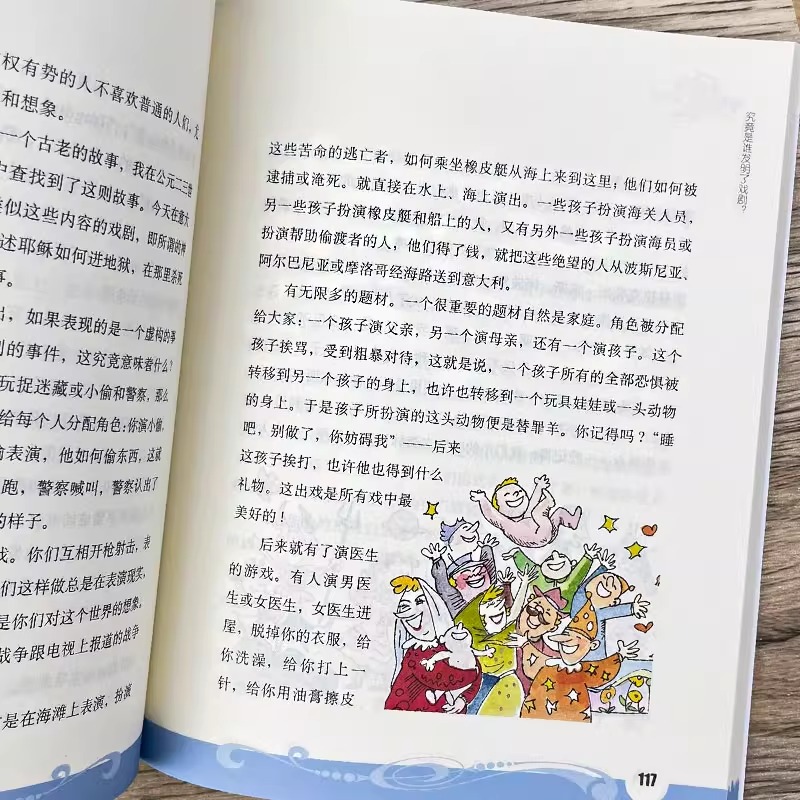 权有势的人不喜欢普通的人们，
和想象。
一个古老的故事，我在公元二三世
中查找到了这则故事。今天在意大
类似这些内容的戏剧，即所谓的神
述耶稣如何进地狱，在那里杀死
事。
出，如果表现的是一个虚构的事
剧的事件，这究竟意味者什么？
玩捉迷藏或小偷和警察，那么
给每个人分配角色：你演小偷，
偷表演，他如何偷东西，这就
跑，警察喊叫，警察认出了
的样子。
戏。你们互相开枪射击，表
们这样做总是在表演现实，
是你们对这个世界的想象。
战争跟电视上报道的战争
是在海滩上表演，扮演
究竟是谁发明了戏剧？
这些苦命的逃亡者，如何乘坐橡皮艇从海上来到这里；他们如何被
逮捕或淹死。就直接在水上、海上演出。一些孩子扮演海关人员，
另一些孩子扮演橡皮艇和船上的人，又有另外一些孩子扮演海员或
扮演帮助偷渡者的人，他们得了钱，就把这些绝望的人从波斯尼亚、
阿尔巴尼亚或摩洛哥经海路送到意大利。
有无限多的题材。一个很重要的题材自然是家庭。角色被分配
给大家：一个孩子演父亲，另一个演母亲，还有一个演孩子。这个
孩子挨骂，受到粗暴对待，这就是说，一个孩子所有的全部恐惧被
转移到另一个孩子的身上，也许也转移到一个玩具娃娃或一头动物
的身上。于是孩子所扮演的这头动物便是替罪羊。你记得吗？“睡
吧，别做了，你妨碍我”——后来
这孩子挨打，也许他也得到什么
礼物。这出戏是所有戏中最
美好的！
后来就有了演医生
的游戏。有人演男医
生或女医生，女医生进
屋，脱掉你的衣服，给
你洗澡，给你打上一
针，给你用油膏擦皮
117